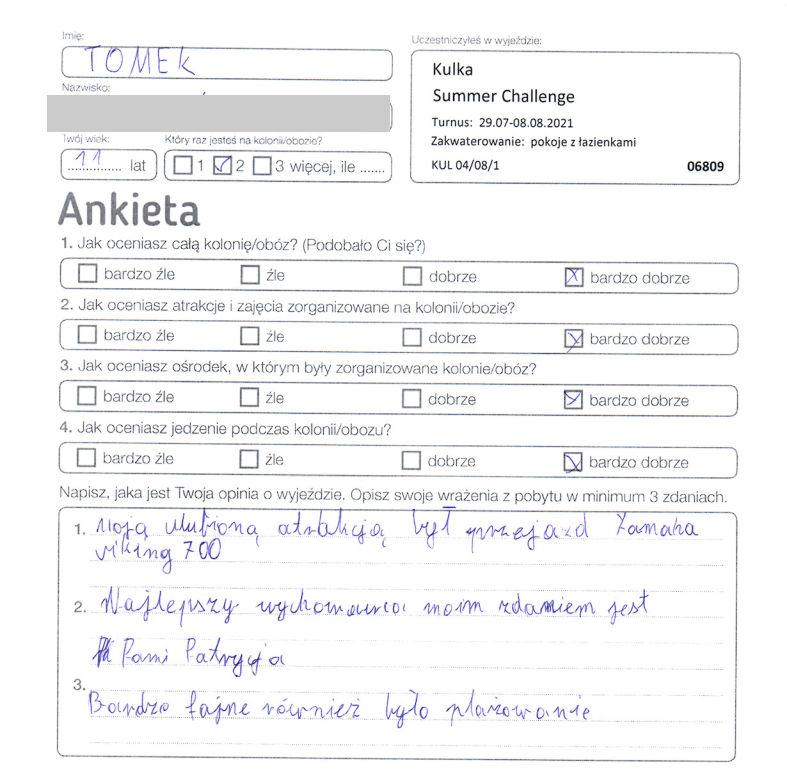 Imię:
TOMEK
Nazwisko:
Twój wiek:
11 lat
Który raz jesteś na kolonii/obozie?
1 2 3 więcej, ile .......
Uczestniczyłeś w wyjeździe:
Kulka
Summer Challenge
Turnus: 29.07-08.08.2021
Zakwaterowanie: pokoje z łazienkami
KUL 04/08/1 06809
Ankieta
1. Jak oceniasz całą kolonię/obóz? (Podobało Ci się?)
bardzo źle źle dobrze bardzo dobrze
2. Jak oceniasz atrakcje i zajęcia zorganizowane na kolonii/obozie?
bardzo źle źle dobrze bardzo dobrze
3. Jak oceniasz ośrodek, w którym były zorganizowane kolonie/obóz?
bardzo źle źle dobrze bardzo dobrze
4. Jak oceniasz jedzenie podczas kolonii/obozu?
bardzo źle źle dobrze bardzo dobrze
Napisz, jaka jest Twoja opinia o wyjeździe. Opisz swoje wrażenia z pobytu w minimum 3 zdaniach.
1. Moją ulubioną atrakcją był przejazd Yamaha
viking 700
2. Najlepszy wychowawca moim zdaniem jest
Pani Patrycja
3.
Bardzo fajne również było plażowanie